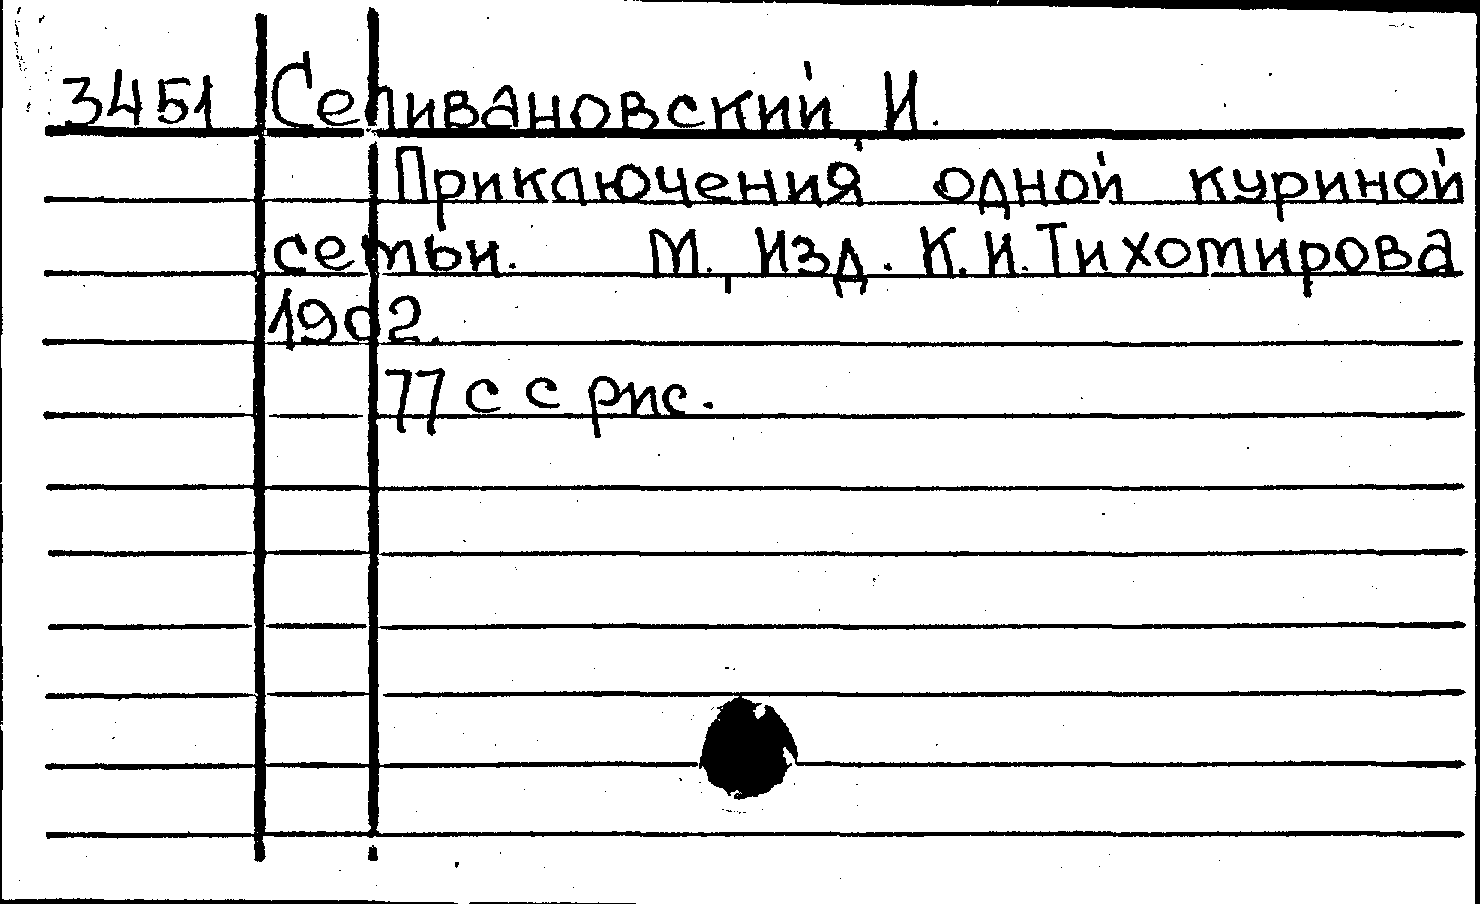 3451 Селивановский И.
Приключения одной куриной
семьи. М., Изд. К.И.Тихомирова
1902.
77 с с рис.